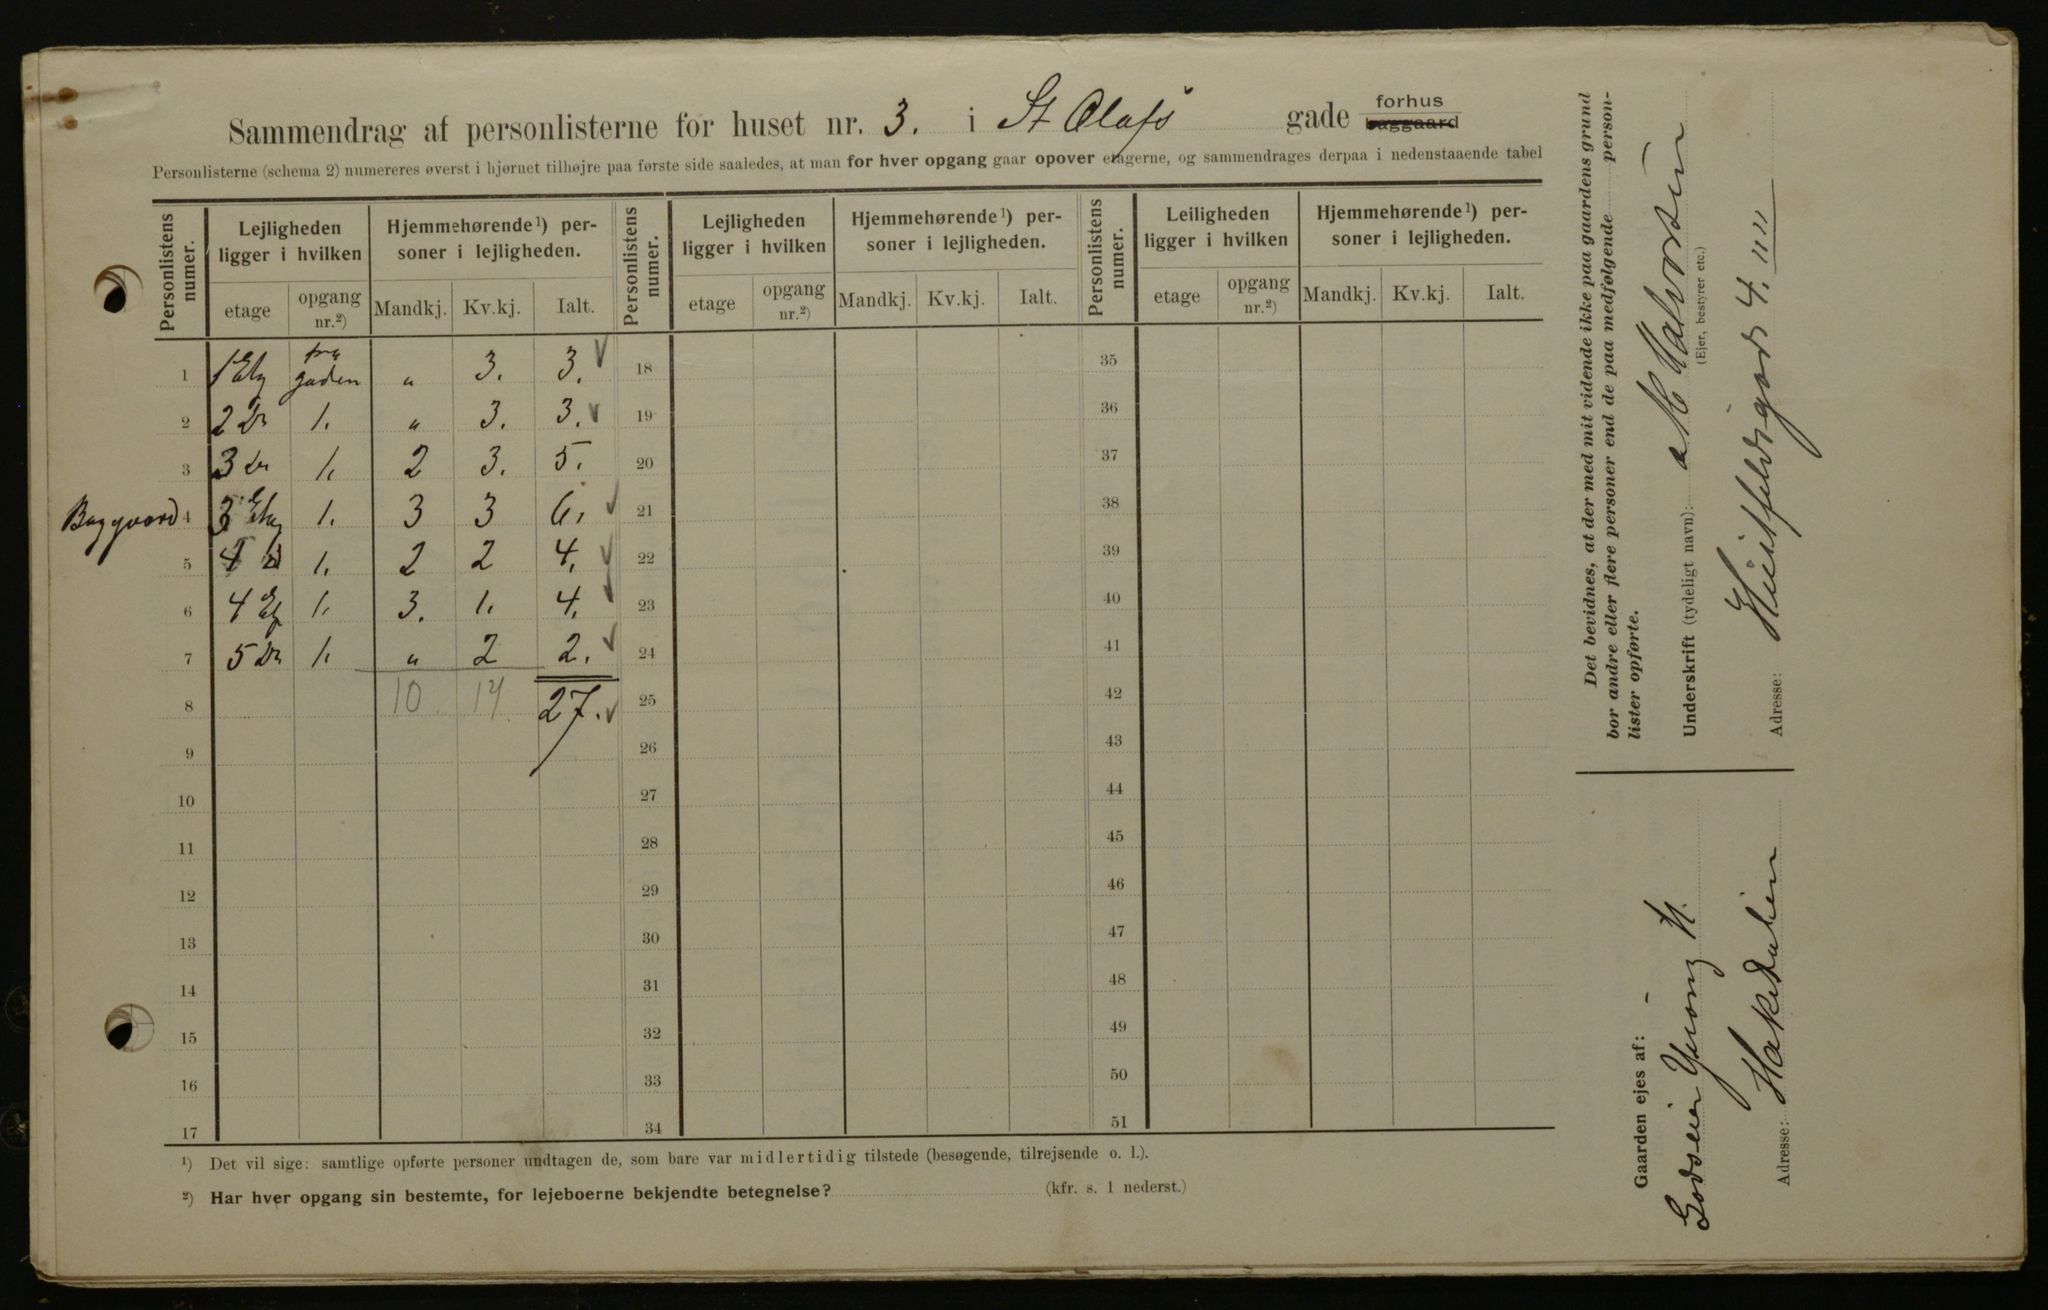 Sammendrag af personlisterne for huset nr. 3. i St Olafs gade forhus baggaard
Personlisterne (schema 2) numereres øverst i hjørnet tilhøjre paa første side saaledes, at man for hver opgang gaar opover etagerne, og sammendrages derpaa i nedenstaaende tabel
Personlistens numer. Lejligheden ligger i hvilken Hjemmehørende¹) personer i lejligheden. Personlistens numer. Lejligheden ligger i hvilken Hjemmehørende¹) personer i lejligheden. Personlistens numer. Leiligheden ligger i hvilken Hjemmehørende¹) personer i lejligheden.
etage opgang nr.²) Mandkj. Kv.kj. Ialt. etage opgang nr.²) Mandkj. Kv.kj. Ialt. etage opgang nr.²) Mandkj. Kv.kj. Ialt.
1 1 Etg fra gaden " 3. 3. 18 35
2 2 Do 1. " 3. 3. 19 36
3 3 Do 1. 2 3. 5. 20 37
Baggaard 4 3 Etag 1. 3 3 6. 21 38
5 4 1. 2 2 4. 22 39
6 4 Etg 1. 3. 1. 4. 23 40
7 5 Do 1. " 2 2. 24 41
8 10 17 27. 25 42
9 26 43
10 27 44
11 28 45
12 29 46
13 30 47
14 31 48
15 32 49
16 33 50
17 34 51
¹) Det vil sige: samtlige opførte personer undtagen de, som bare var midlertidig tilstede (besøgende, tilrejsende o. l.).
²) Har hver opgang sin bestemte, for lejeboerne bekjendte betegnelse? (kfr. s. 1 nederst.)
Det bevidnes, at der med mit vidende ikke paa gaardens grund
bor andre eller flere personer end de paa medfølgende personlister opførte.
Underskrift (tydeligt navn): M Halvorsen
(Ejer, bestyrer etc.)
Adresse: Huitfeldsgade 4.
Gaarden ejes af:
Godseier Young
Adresse: Hakedalen